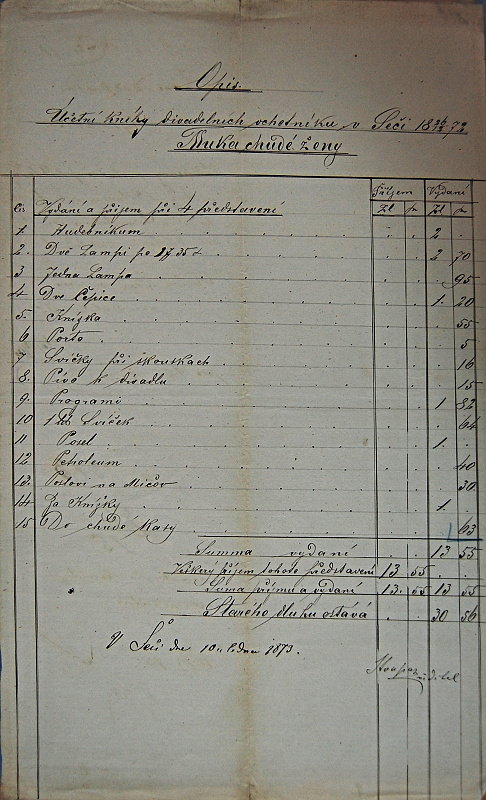 Opis.
Účetní knížky divadelních ochotníku v Seči 18 26/12 72
Muka chudé ženy
Příjem Vydání
Čís Vydání a příjem při 4 představení Zl kr Zl kr
1. Hudebníkum 2 .
2. Dvě Lampi po 1 Zl 35 2 70
3 Jedna Lampa 95
4 Dvě Čepice 1 20
5. Knížka 55
6 Porto 5
7 Svíčky při skouškach 16
8. Pivo k divadlu 15
9. Programů 1 82
10 1 Svíček 64
11 Posel 1 .
12 Petroleum 40
13. Poslovi na Mičov 30
14 Za Knížky 1 .
15 Do chudé kasy 63
Summa vydaní 13 55
Veškerý příjem tohoto představení 13 55
Suma příjmu a vydaní 13. 55 13 55
Starého dluhu ostává 30 56
V Seči dne 10. ledna 1873.
ředitel